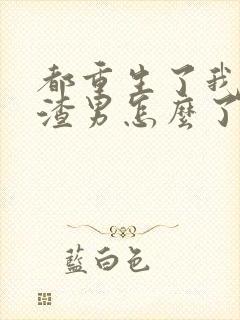 都重生了我
渣男怎麼了
藍白色